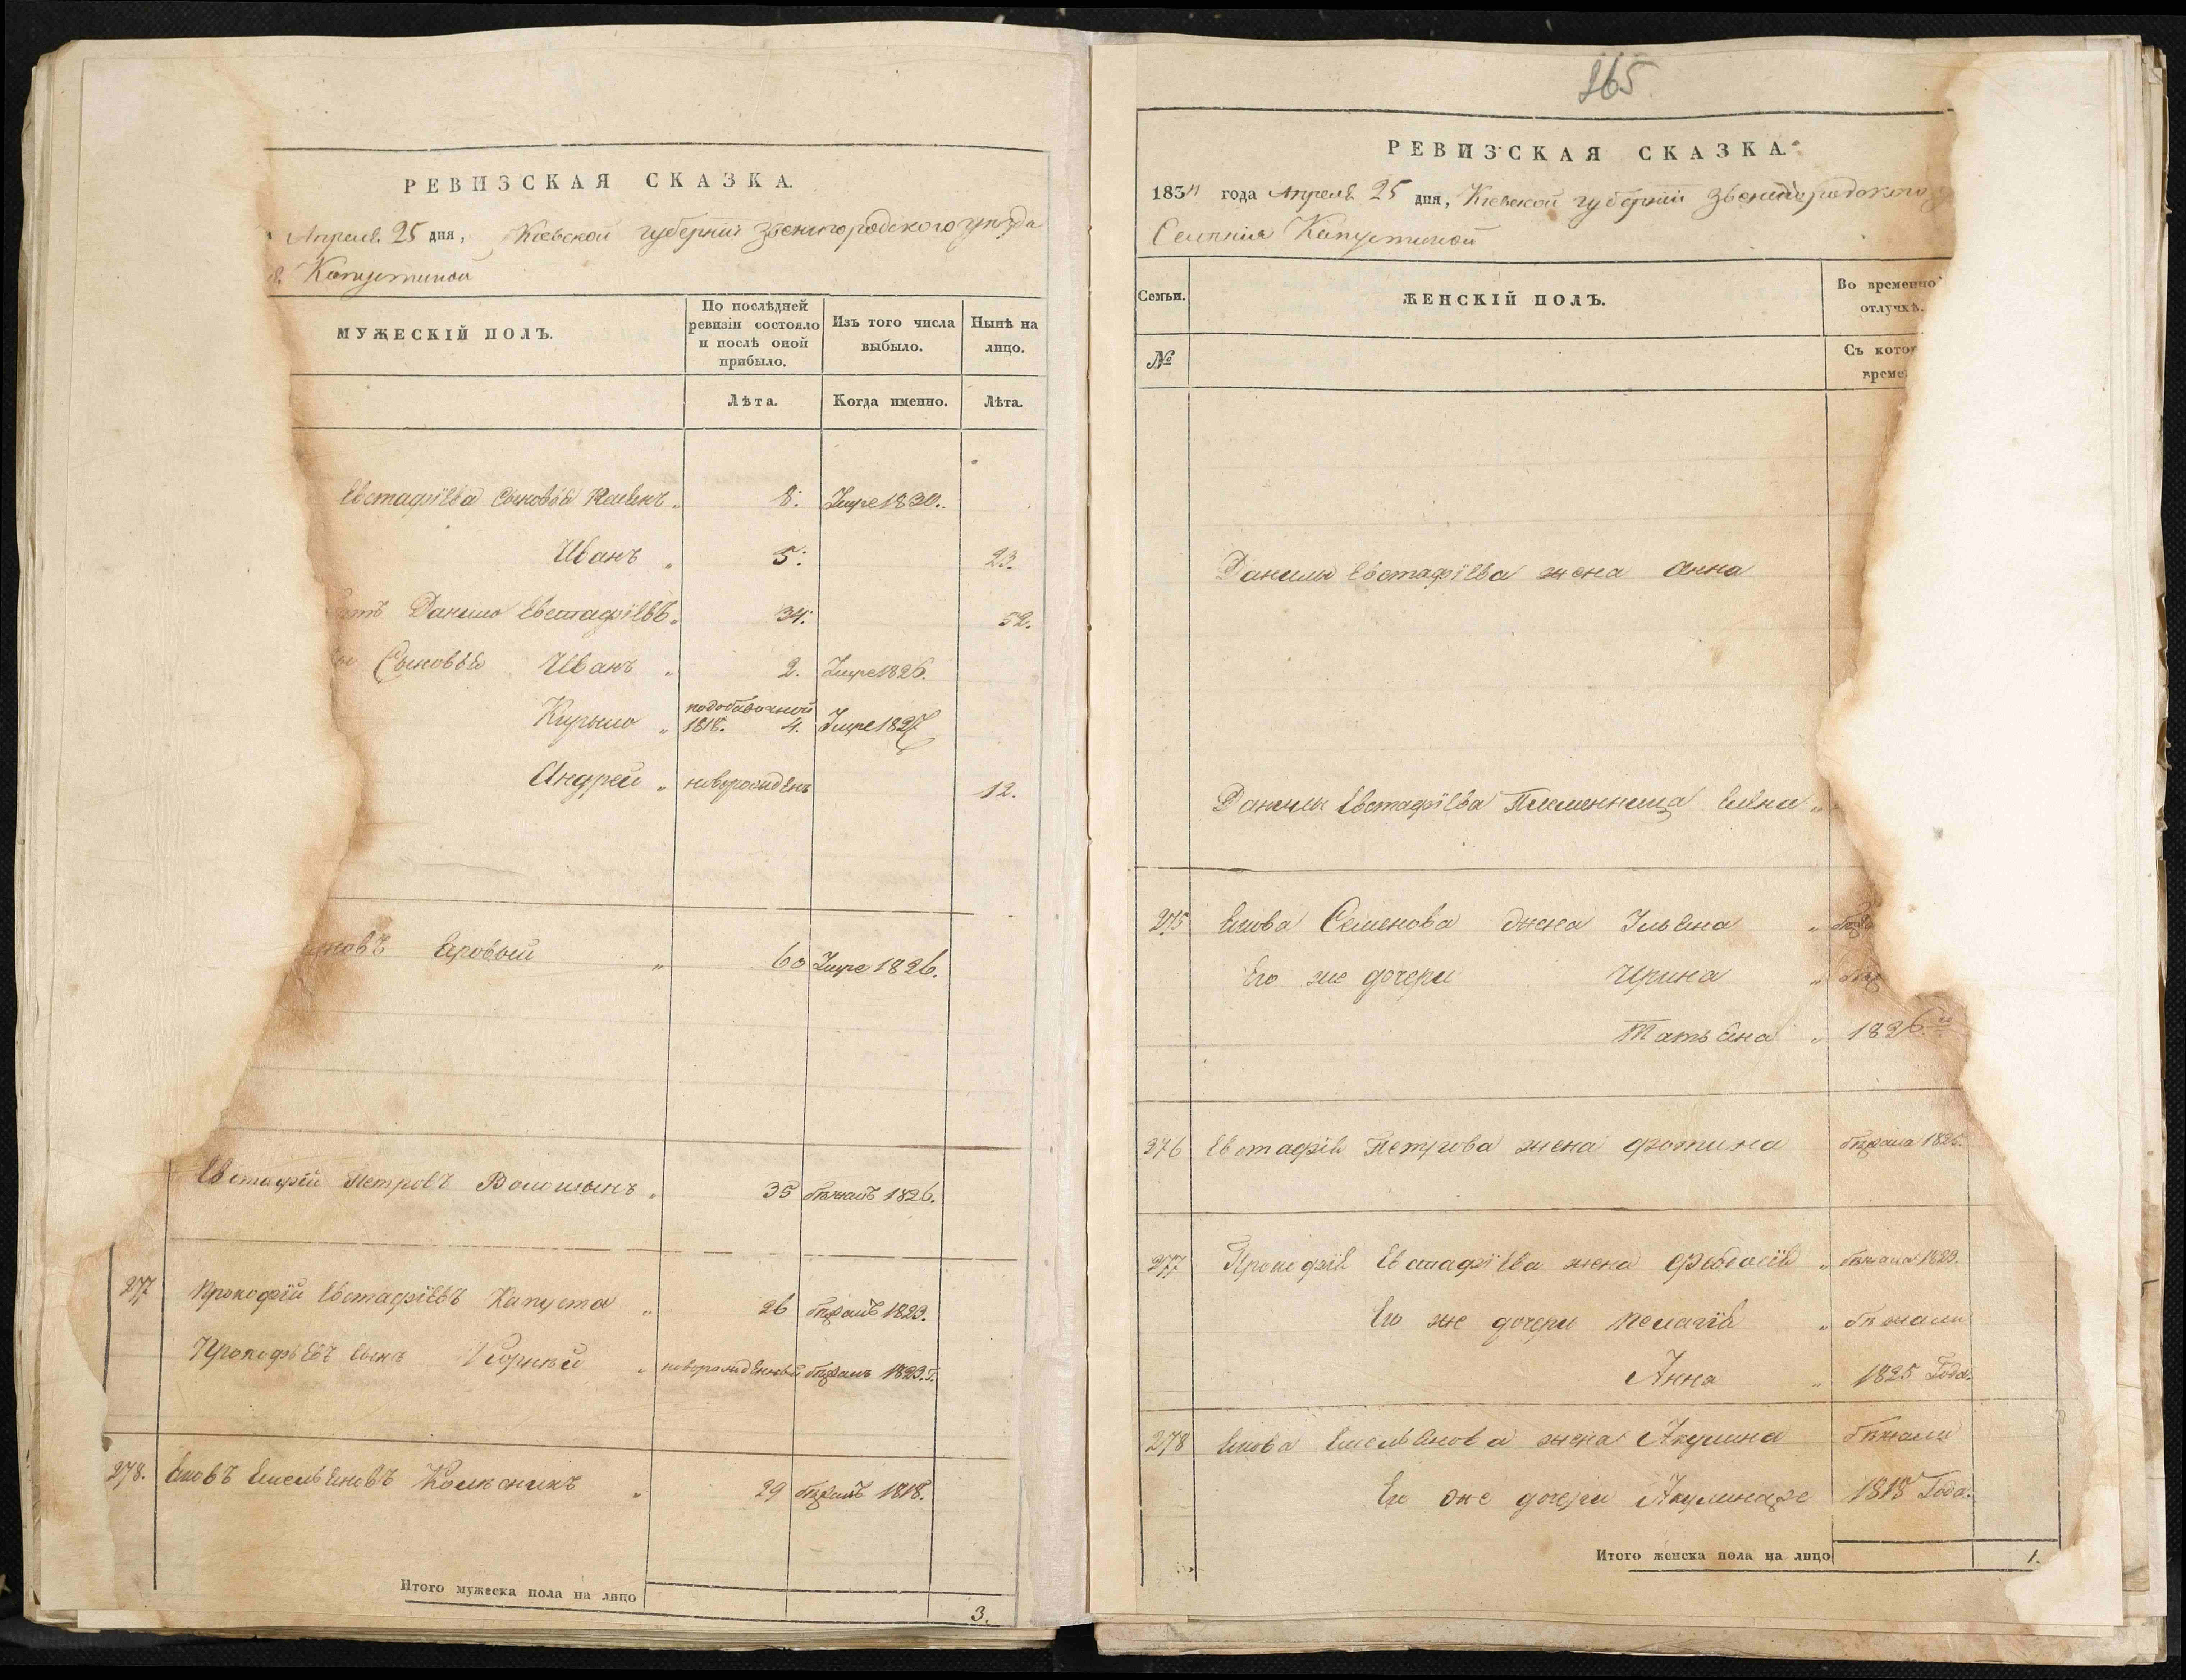 РЕВИЗСКАЯ СКАЗКА.
Апреля 25 дня, Кіевской губерніи Звенигородского уезда
Капустиной
МУЖЕСКІЙ ПОЛЪ.
По послѣдней ревизіи состояло и послѣ оной прибыло.
Изъ того числа выбыло.
Нынѣ на лицо.
Лѣта.
Когда именно.
Лѣта.
Евстафіева сыновья 8.
Иванъ „ 5. 23.
Данило Евстафіевъ „ 34. 52.
Сыновья Иванъ „ 2. 1826.
Кирыло „ 1818. 4.
Андрей „ новорожденъ 12.
Яровый „ 60 1826.
Евстафій Петровъ Волошынъ „ 35 бѣжалъ 1826.
277 Прокофій Евстафіевъ Капуста „ 26 бѣжалъ 1823.
Прокофьевъ сынъ „ новорожденный бѣжалъ 1823.
278. Яковъ Емельяновъ „ 29 бѣжалъ 1818.
Итого мужеска пола на лицо 3.
265
РЕВИЗСКАЯ СКАЗКА.
1834 года Апреля 25 дня, Кіевской губерніи Звенигородского
Селенія Капустиной
Семьи.
ЖЕНСКІЙ ПОЛЪ.
Во временно
отлучкѣ.
№
Съ котор
време
Данилы Евстафіева жена Анна
Данилы Евстафіева Племенница Елена „
275 Якова Семенова жена Ульяна „
Его же дочери Ирина „
Татьяна „ 1826
276 Евстафія Петрова жена Фотина бѣжала 1826.
277 Прокофія Евстафіева жена Феодосія „ бѣжала 1823.
Его же дочери Пелагія „ бѣжали
Анна „ 1825 Года.
278 Якова Емельянова жена Акулина бѣжали
Его же дочери 1818 Года.
Итого женска пола на лицо 1.